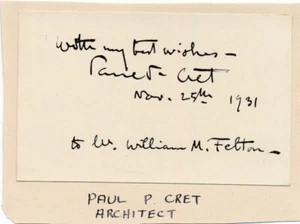 with my best wishes —
Paul P. Cret
Nov. 25th 1931
to Mr. William M. Felton —
PAUL P. CRET
ARCHITECT